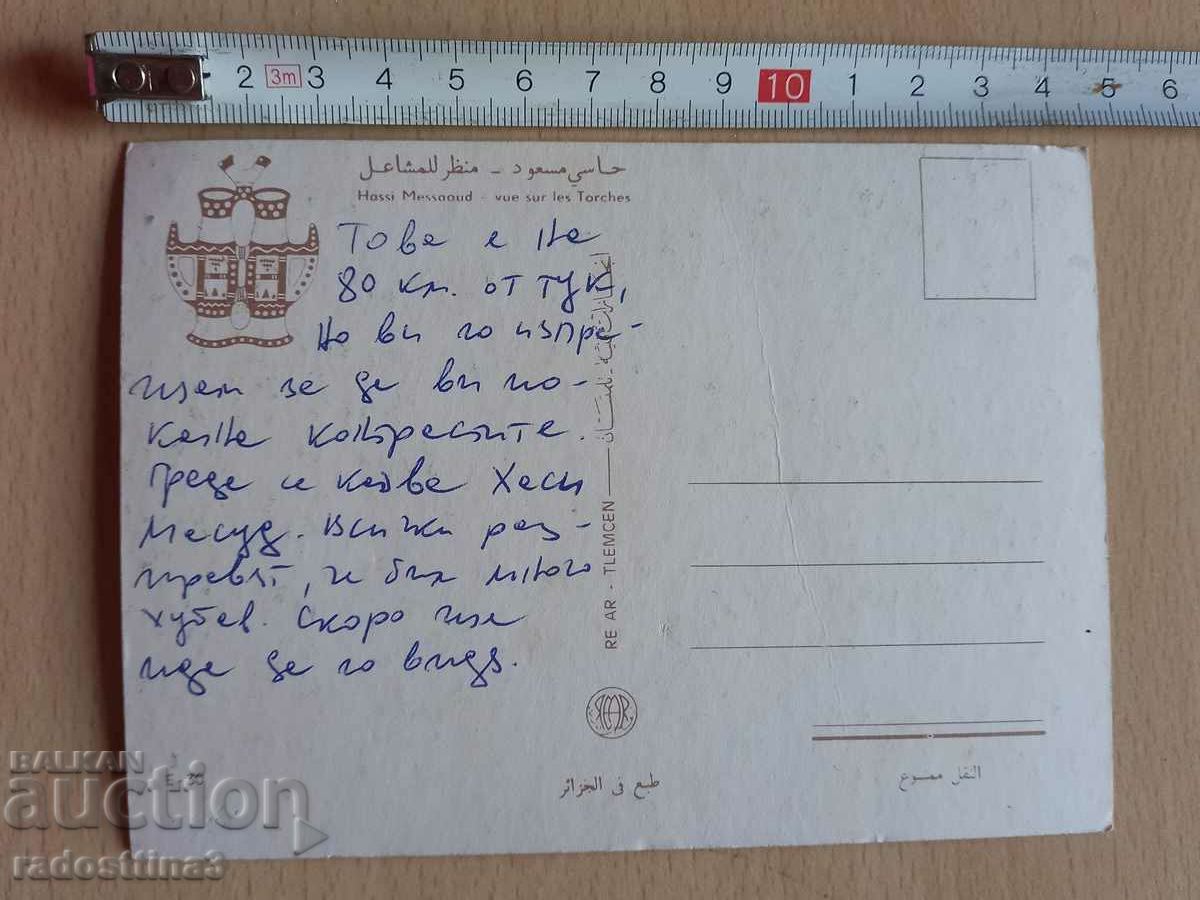 2 3m 3 4 5 6 7 8 9 10 1 2 3 4 5 6
حاسي مسعود - منظر للمشاعل
Hassi Messaoud - vue sur les Torches
Това е на
80 км. от тук,
но ви го изпра-
щам за да ви по-
кажа контрастите.
Града се казва Хаси
Месуд. Всички раз-
правят, че бил много
хубав. Скоро ще
ида да го видя.
RE AR - TLEMCEN
طبع في الجزائر
النقل ممنوع
BALKAN
auction
radosttina3